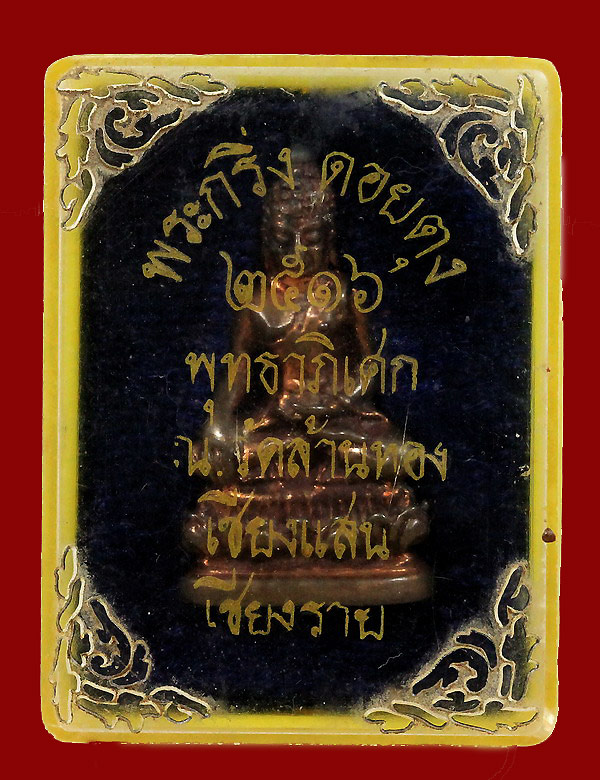 พระกริ่ง ดอยตุง
๒๕๑๖
พุทธาภิเศก
ณ.วัดล้านทอง
เชียงแสน
เชียงราย